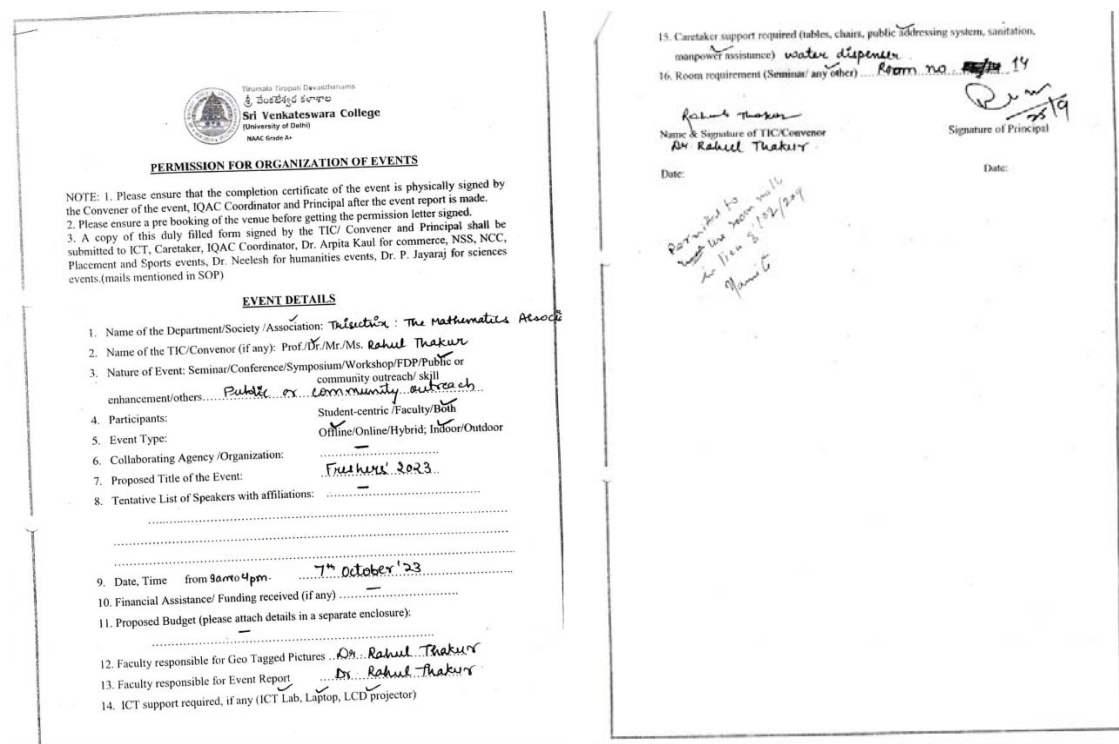 Tirumala Tirupati Devasthanams
శ్రీ వేంకటేశ్వర కళాశాల
Sri Venkateswara College
(University of Delhi)
NAAC Grade A+
PERMISSION FOR ORGANIZATION OF EVENTS
NOTE: 1. Please ensure that the completion certificate of the event is physically signed by
the Convener of the event, IQAC Coordinator and Principal after the event report is made.
2. Please ensure a pre booking of the venue before getting the permission letter signed.
3. A copy of this duly filled form signed by the TIC/ Convener and Principal shall be
submitted to ICT, Caretaker, IQAC Coordinator, Dr. Arpita Kaul for commerce, NSS, NCC,
Placement and Sports events, Dr. Neelesh for humanities events, Dr. P. Jayaraj for sciences
events.(mails mentioned in SOP)
EVENT DETAILS
1. Name of the Department/Society /Association: Trisectrix : The Mathematics Associ
2. Name of the TIC/Convenor (if any): Prof./Dr./Mr./Ms. Rahul Thakur
3. Nature of Event: Seminar/Conference/Symposium/Workshop/FDP/Public or
community outreach/ skill
enhancement/others..... Public or community outreach
4. Participants: Student-centric /Faculty/Both
5. Event Type: Offline/Online/Hybrid; Indoor/Outdoor
6. Collaborating Agency /Organization: —
7. Proposed Title of the Event: Freshers' 2023
8. Tentative List of Speakers with affiliations: —
9. Date, Time from 9am to 4pm. 7th October '23
10. Financial Assistance/ Funding received (if any) —
11. Proposed Budget (please attach details in a separate enclosure):
—
12. Faculty responsible for Geo Tagged Pictures ..Dr. Rahul Thakur
13. Faculty responsible for Event Report ....Dr. Rahul Thakur
14. ICT support required, if any (ICT Lab, Laptop, LCD projector)
15. Caretaker support required (tables, chairs, public addressing system, sanitation,
manpower assistance) water dispenser
16. Room requirement (Seminar/ any other) ....Room no. 14
Rahul Thakur
Name & Signature of TIC/Convenor
Dr. Rahul Thakur
Signature of Principal
Date:
Date:
Permitted to
use room no 14
in lieu of 102/209